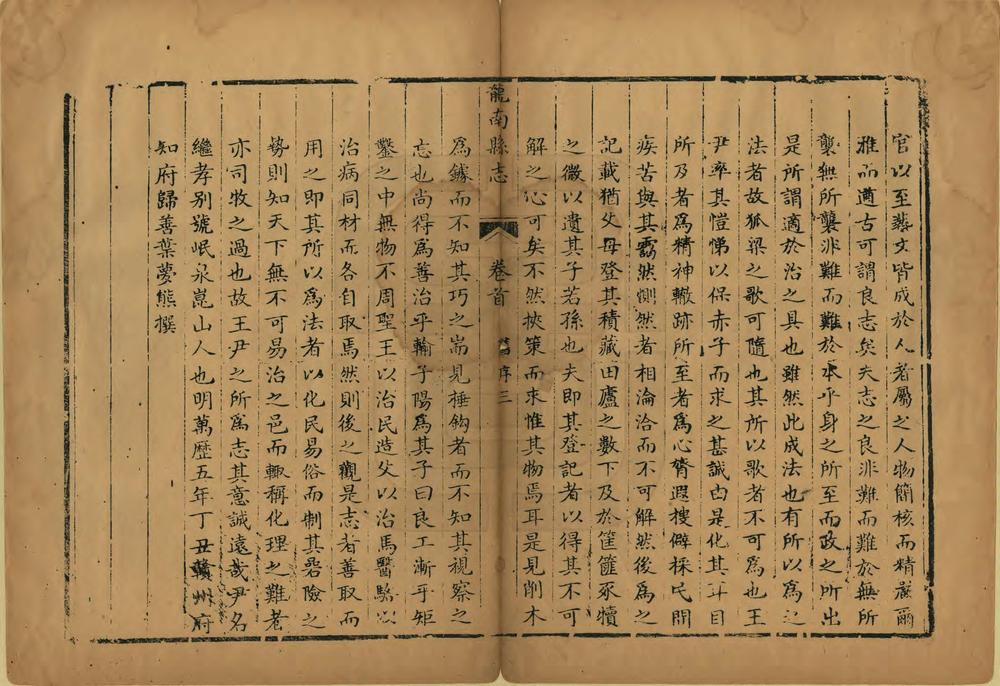 官以至藝文皆成於人者屬之人物簡核而精嚴爾
雅而遒古可謂良志矣夫志之良非難而難於無所
襲無所襲非難而難於本乎身之所至而政之所出
是所謂適於治之具也雖然此成法也有所以為之
法者故狐梁之歌可隨也其所以歌者不可為也王
尹率其愷悌以保赤子而求之甚誠由是化其耳目
所及者為精神轍跡所至者為心膂遐搜僻採民間
疾苦與其靄然惻然者相淪洽而不可解然後為之
記載猶父母登其積藏田廬之數下及於筐篚豕犢
之微以遺其子若孫也夫即其登記者以得其不可
解之心可矣不然挾策而求惟其物焉耳是見削木
龍南縣志 卷首 舊序三
為鐻而不知其巧之耑見捶鈎者而不知其視察之
忘也尚得為善治乎輸子陽為其子曰良工漸乎矩
鑿之中無物不周聖王以治民造父以治馬醫駱以
治病同材而各自取焉然則後之觀是志者善取而
用之即其所以為法者以化民易俗而制其碞險之
勢則知天下無不可易治之邑而輙稱化理之難者
亦司牧之過也故王尹之所為志其意誠遠哉尹名
繼孝别號岷泉崑山人也明萬歷五年丁丑贛州府
知府歸善葉夢熊撰